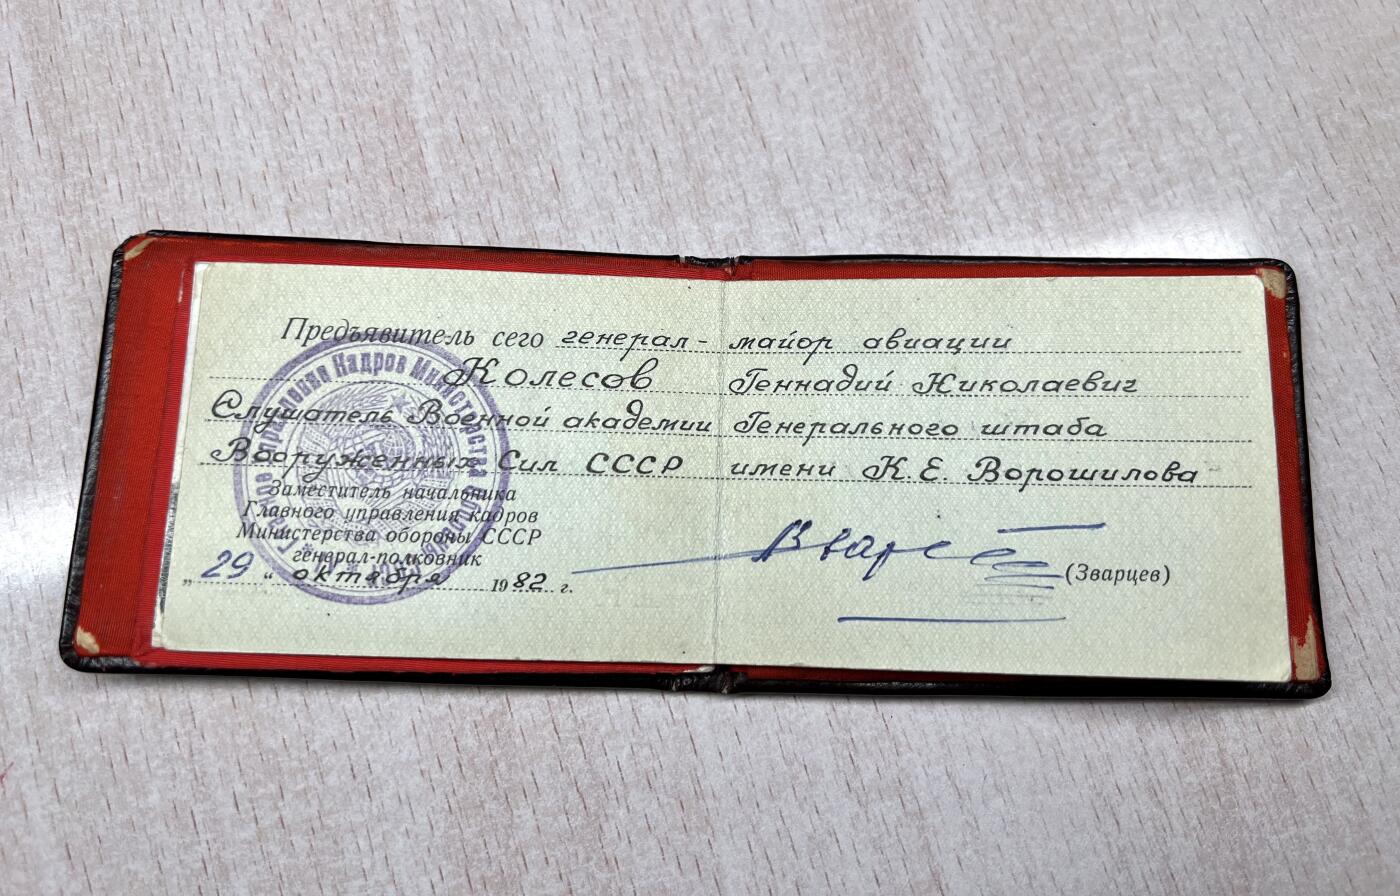 Предъявитель сего генерал-майор авиации
Колесов Геннадий Николаевич
Слушатель Военной академии Генерального штаба
Вооруженных Сил СССР имени К.Е. Ворошилова
Заместитель начальника
Главного управления кадров
Министерства обороны СССР
генерал-полковник
(Зварцев)
„29“ октября 1982 г.
Главное Управление Кадров Министерства Обороны СССР